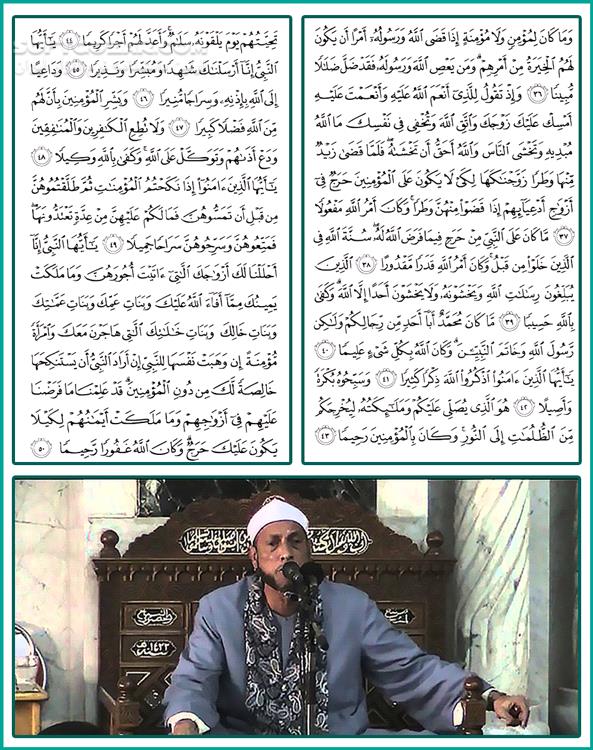 وَمَا كَانَ لِمُؤْمِنٍ وَلَا مُؤْمِنَةٍ إِذَا قَضَى اللَّهُ وَرَسُولُهُۥٓ أَمْرًا أَن يَكُونَ
لَهُمُ الْخِيَرَةُ مِنْ أَمْرِهِمْ ۗ وَمَن يَعْصِ اللَّهَ وَرَسُولَهُۥ فَقَدْ ضَلَّ ضَلَٰلًا
مُّبِينًا ٣٦ وَإِذْ تَقُولُ لِلَّذِىٓ أَنْعَمَ اللَّهُ عَلَيْهِ وَأَنْعَمْتَ عَلَيْهِ
أَمْسِكْ عَلَيْكَ زَوْجَكَ وَاتَّقِ اللَّهَ وَتُخْفِى فِى نَفْسِكَ مَا اللَّهُ
مُبْدِيهِ وَتَخْشَى النَّاسَ وَاللَّهُ أَحَقُّ أَن تَخْشَىٰهُ ۖ فَلَمَّا قَضَىٰ زَيْدٌ
مِّنْهَا وَطَرًا زَوَّجْنَٰكَهَا لِكَىْ لَا يَكُونَ عَلَى الْمُؤْمِنِينَ حَرَجٌ فِىٓ
أَزْوَٰجِ أَدْعِيَآئِهِمْ إِذَا قَضَوْا۟ مِنْهُنَّ وَطَرًا ۚ وَكَانَ أَمْرُ اللَّهِ مَفْعُولًا
٣٧ مَّا كَانَ عَلَى النَّبِىِّ مِنْ حَرَجٍ فِيمَا فَرَضَ اللَّهُ لَهُۥ ۖ سُنَّةَ اللَّهِ فِى
الَّذِينَ خَلَوْا۟ مِن قَبْلُ ۚ وَكَانَ أَمْرُ اللَّهِ قَدَرًا مَّقْدُورًا ٣٨ الَّذِينَ
يُبَلِّغُونَ رِسَٰلَٰتِ اللَّهِ وَيَخْشَوْنَهُۥ وَلَا يَخْشَوْنَ أَحَدًا إِلَّا اللَّهَ ۗ وَكَفَىٰ
بِاللَّهِ حَسِيبًا ٣٩ مَّا كَانَ مُحَمَّدٌ أَبَآ أَحَدٍ مِّن رِّجَالِكُمْ وَلَٰكِن
رَّسُولَ اللَّهِ وَخَاتَمَ النَّبِيِّۦنَ ۗ وَكَانَ اللَّهُ بِكُلِّ شَىْءٍ عَلِيمًا ٤٠
يَٰٓأَيُّهَا الَّذِينَ ءَامَنُوا۟ اذْكُرُوا۟ اللَّهَ ذِكْرًا كَثِيرًا ٤١ وَسَبِّحُوهُ بُكْرَةً
وَأَصِيلًا ٤٢ هُوَ الَّذِى يُصَلِّى عَلَيْكُمْ وَمَلَٰٓئِكَتُهُۥ لِيُخْرِجَكُم
مِّنَ الظُّلُمَٰتِ إِلَى النُّورِ ۚ وَكَانَ بِالْمُؤْمِنِينَ رَحِيمًا ٤٣
تَحِيَّتُهُمْ يَوْمَ يَلْقَوْنَهُۥ سَلَٰمٌ ۚ وَأَعَدَّ لَهُمْ أَجْرًا كَرِيمًا ٤٤ يَٰٓأَيُّهَا
النَّبِىُّ إِنَّآ أَرْسَلْنَٰكَ شَٰهِدًا وَمُبَشِّرًا وَنَذِيرًا ٤٥ وَدَاعِيًا
إِلَى اللَّهِ بِإِذْنِهِۦ وَسِرَاجًا مُّنِيرًا ٤٦ وَبَشِّرِ الْمُؤْمِنِينَ بِأَنَّ لَهُم
مِّنَ اللَّهِ فَضْلًا كَبِيرًا ٤٧ وَلَا تُطِعِ الْكَٰفِرِينَ وَالْمُنَٰفِقِينَ
وَدَعْ أَذَىٰهُمْ وَتَوَكَّلْ عَلَى اللَّهِ ۚ وَكَفَىٰ بِاللَّهِ وَكِيلًا ٤٨
يَٰٓأَيُّهَا الَّذِينَ ءَامَنُوٓا۟ إِذَا نَكَحْتُمُ الْمُؤْمِنَٰتِ ثُمَّ طَلَّقْتُمُوهُنَّ
مِن قَبْلِ أَن تَمَسُّوهُنَّ فَمَا لَكُمْ عَلَيْهِنَّ مِنْ عِدَّةٍ تَعْتَدُّونَهَا ۖ
فَمَتِّعُوهُنَّ وَسَرِّحُوهُنَّ سَرَاحًا جَمِيلًا ٤٩ يَٰٓأَيُّهَا النَّبِىُّ إِنَّآ
أَحْلَلْنَا لَكَ أَزْوَٰجَكَ الَّٰتِىٓ ءَاتَيْتَ أُجُورَهُنَّ وَمَا مَلَكَتْ
يَمِينُكَ مِمَّآ أَفَآءَ اللَّهُ عَلَيْكَ وَبَنَاتِ عَمِّكَ وَبَنَاتِ عَمَّٰتِكَ
وَبَنَاتِ خَالِكَ وَبَنَاتِ خَٰلَٰتِكَ الَّٰتِى هَاجَرْنَ مَعَكَ وَامْرَأَةً
مُّؤْمِنَةً إِن وَهَبَتْ نَفْسَهَا لِلنَّبِىِّ إِنْ أَرَادَ النَّبِىُّ أَن يَسْتَنكِحَهَا
خَالِصَةً لَّكَ مِن دُونِ الْمُؤْمِنِينَ ۗ قَدْ عَلِمْنَا مَا فَرَضْنَا
عَلَيْهِمْ فِىٓ أَزْوَٰجِهِمْ وَمَا مَلَكَتْ أَيْمَٰنُهُمْ لِكَيْلَا
يَكُونَ عَلَيْكَ حَرَجٌ ۗ وَكَانَ اللَّهُ غَفُورًا رَّحِيمًا ٥٠